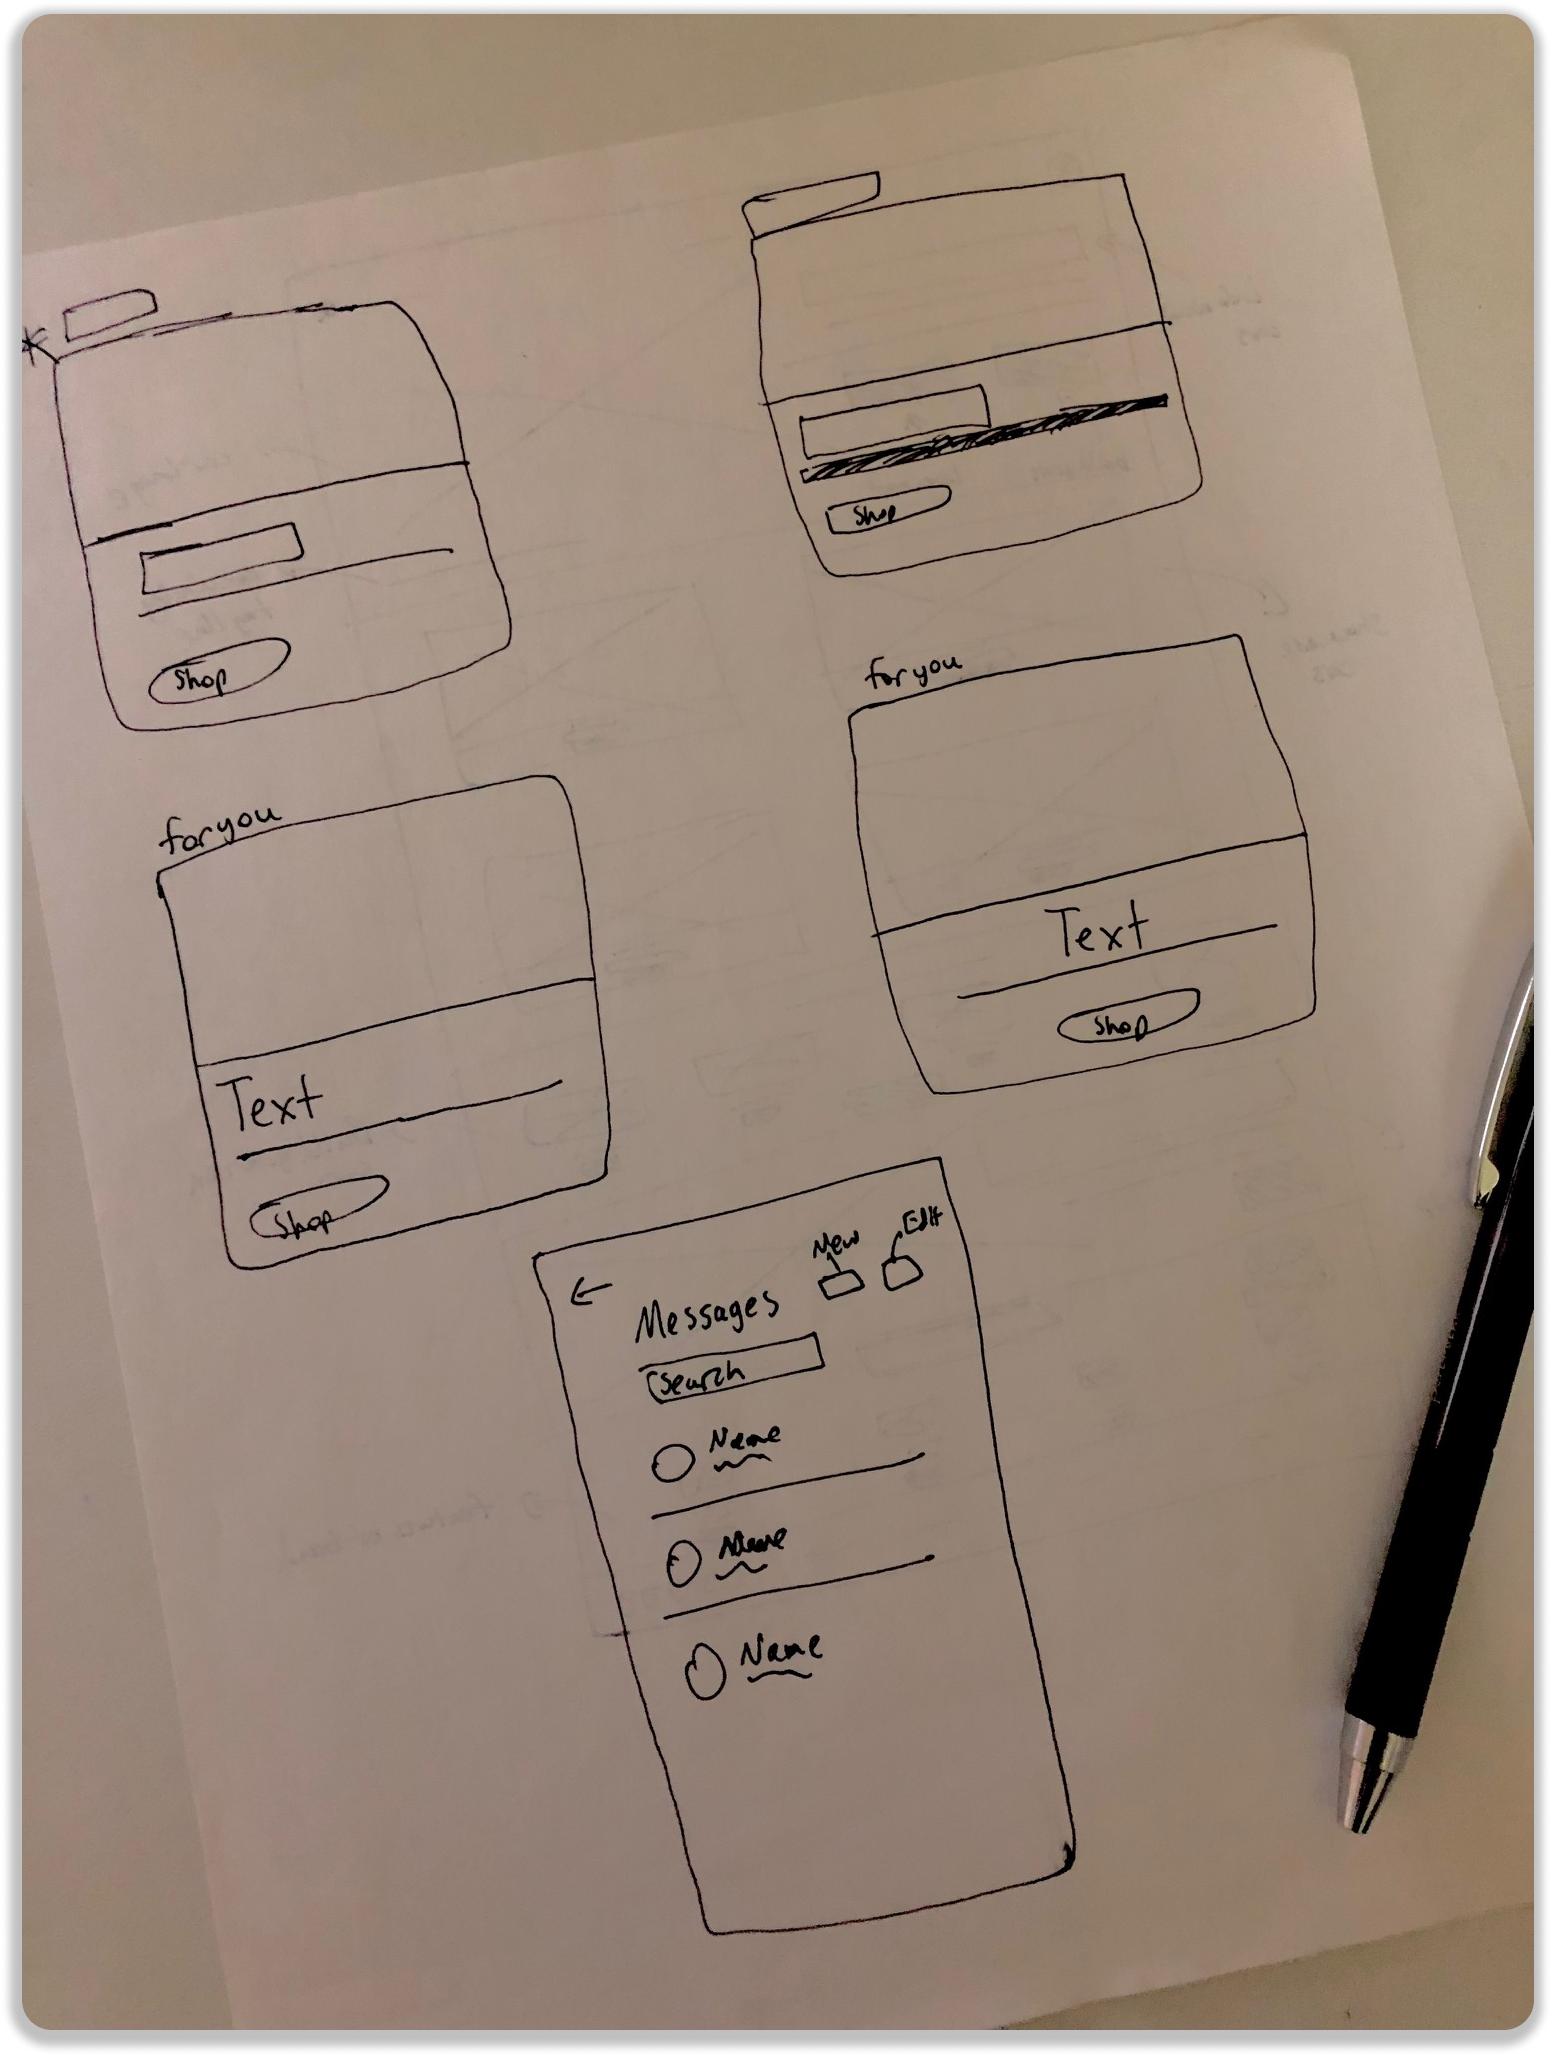 Shop
Shop
for you
for you
Text
Shop
Text
Shop
New
Edit
←
Messages
Search
Name
Name
Name